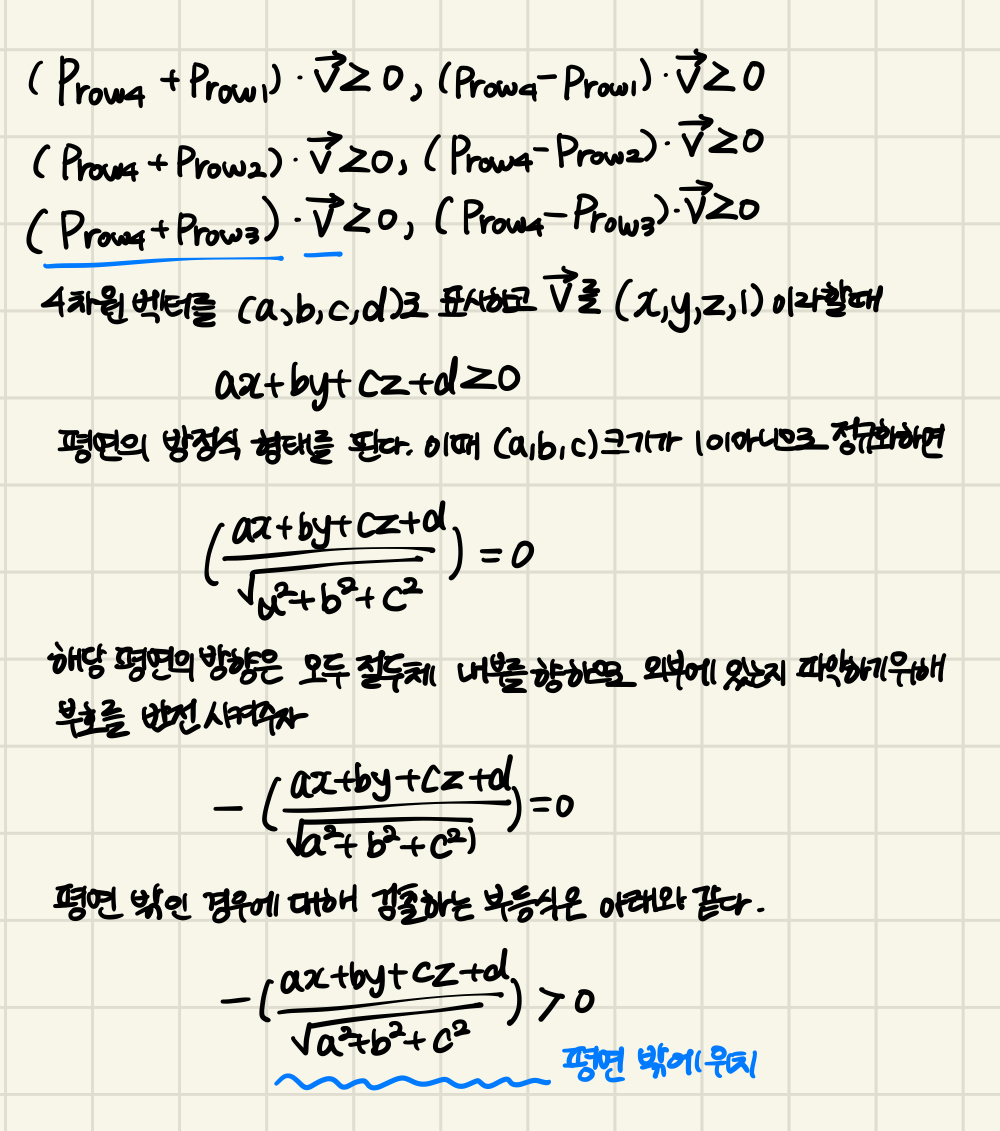 (Prow4 + Prow1) · V⃗ ≥ 0, (Prow4 - Prow1) · V⃗ ≥ 0
(Prow4 + Prow2) · V⃗ ≥ 0, (Prow4 - Prow2) · V⃗ ≥ 0
(Prow4 + Prow3) · V⃗ ≥ 0, (Prow4 - Prow3) · V⃗ ≥ 0
4차원 벡터를 (a,b,c,d)로 표시하고 V⃗를 (x,y,z,1) 이라할때
ax+by+cz+d≥0
평면의 방정식 형태를 띤다. 이때 (a,b,c)크기가 1이아니므로 정규화하면
((ax+by+cz+d)/√(a²+b²+c²)) = 0
해당 평면의 방향은 모두 절두체 내부를 향하므로 외부에 있는지 파악하기위해
부호를 반전 시켜주자
- ((ax+by+cz+d)/√(a²+b²+c²)) = 0
평면 밖인 경우에 대해 검출하는 부등식은 아래와 같다.
- ((ax+by+cz+d)/√(a²+b²+c²)) > 0
평면 밖에 위치